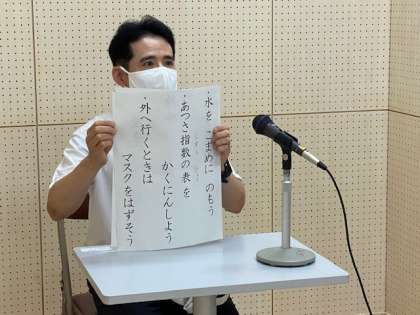 ・水を こまめに のもう
・あつさ指数の表を
かくにんしよう
・外へ行くときは
マスクをはずそう